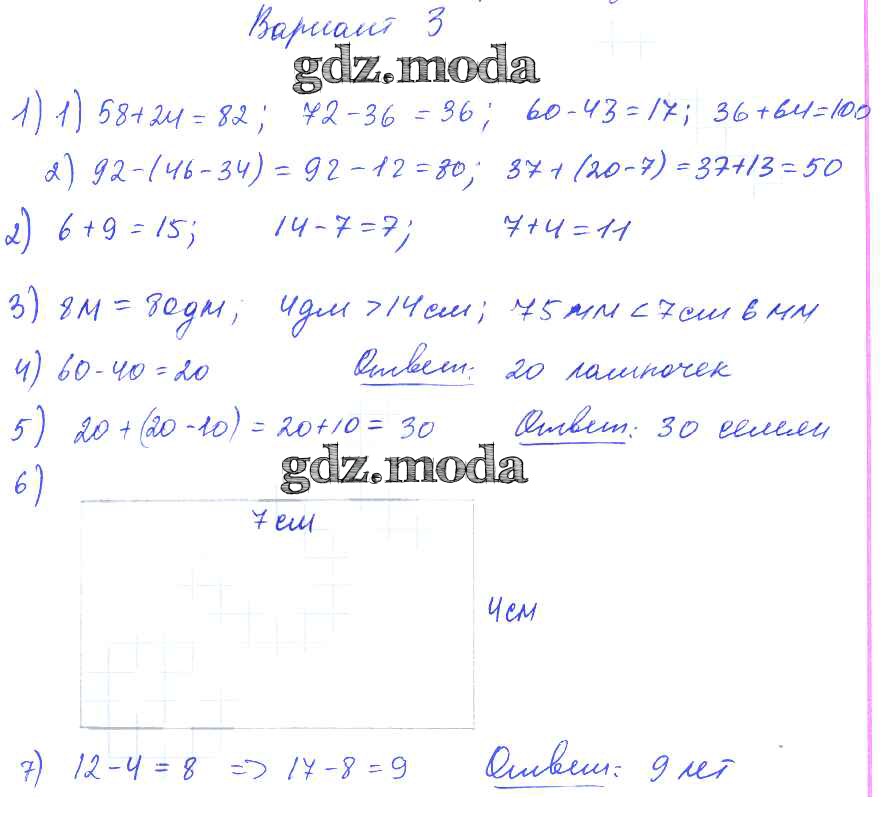 Вариант 3
gdz.moda
1) 1) 58+24=82; 72-36=36; 60-43=17; 36+64=100
2) 92-(46-34)=92-12=80; 37+(20-7)=37+13=50
2) 6+9=15; 14-7=7; 7+4=11
3) 8м=80дм; 4дм>14см; 75мм<7см 6мм
4) 60-40=20 Ответ: 20 лампочек
5) 20+(20-10)=20+10=30 Ответ: 30 семели
gdz.moda
6)
7см
4см
7) 12-4=8 => 17-8=9 Ответ: 9 лет